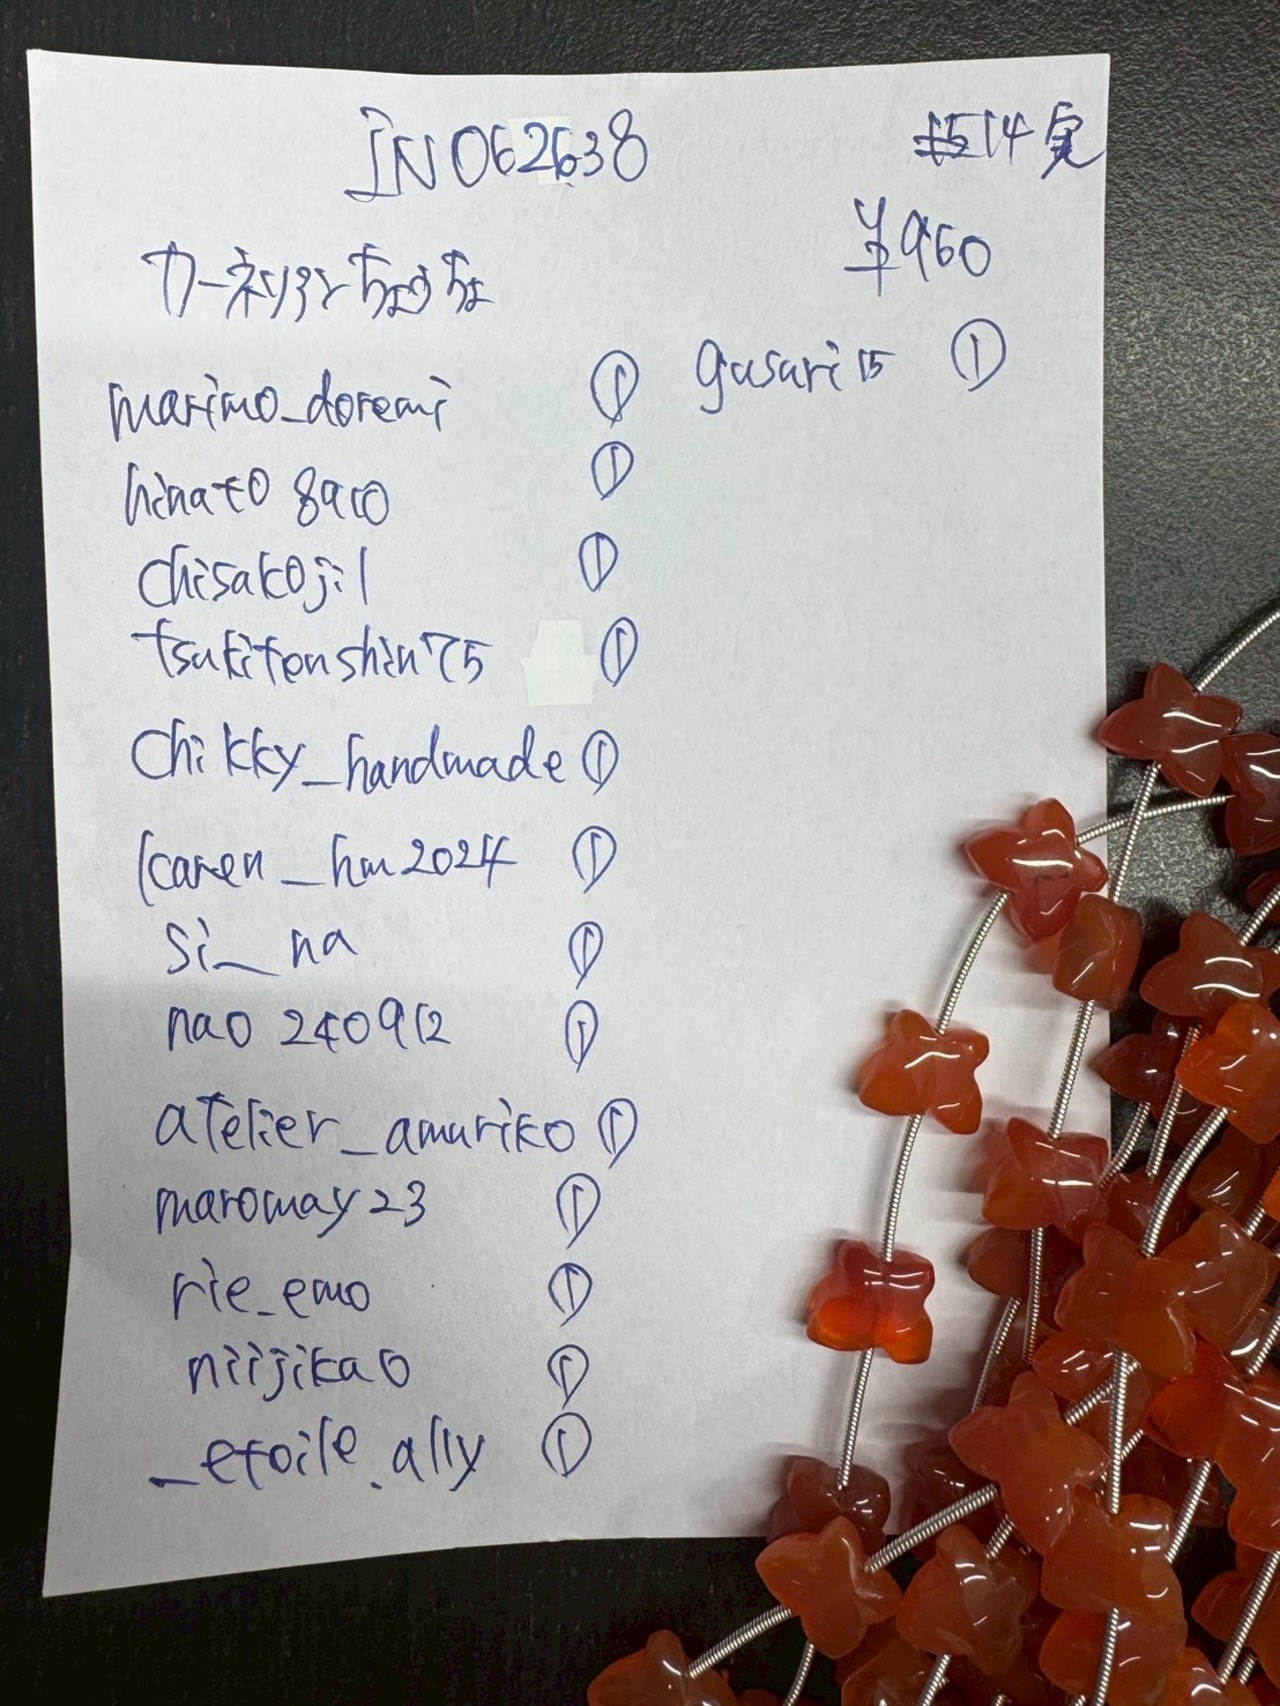 IN062638
14完
¥960
カーネリアンちょうちょ
marimo_doremi ①
hinato8910 ①
chisakoji1 ①
tsukitenshin75 ①
chikky_handmade ①
karen_hm2024 ①
si__na ①
nao240912 ①
atelier_amuriko ①
maromay23 ①
rie_emo ①
niijikao ①
_etoile.ally ①
gusari15 ①